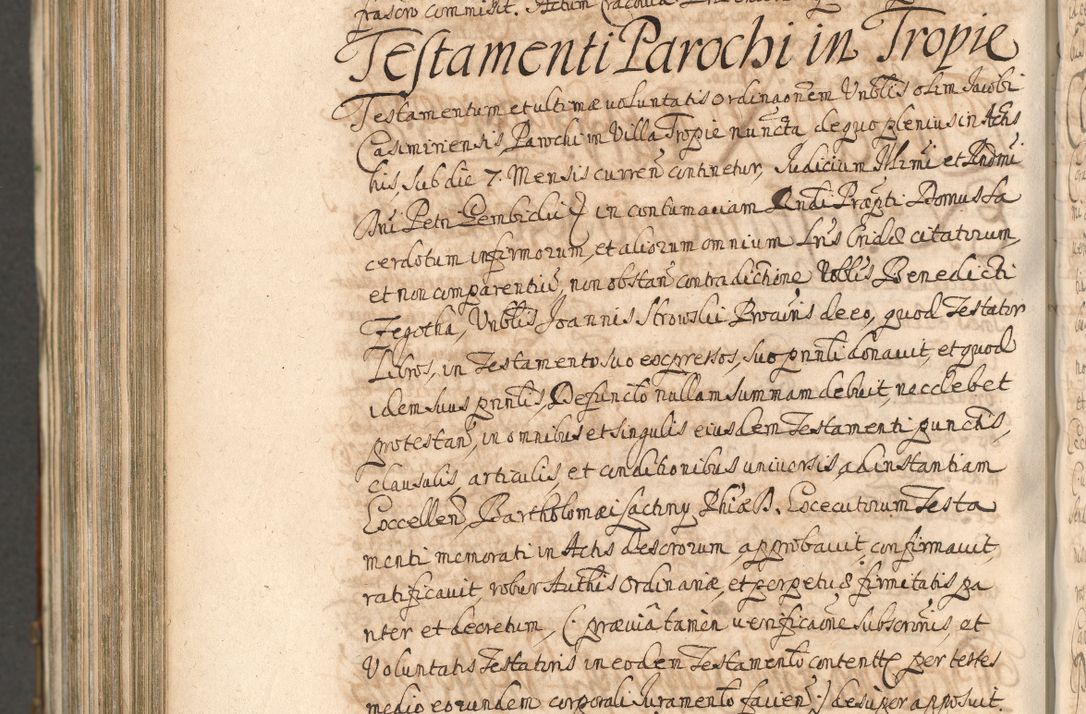 Testamenti Parochi in Tropie
Testamentum et ultimæ voluntatis ordinaonem Vnblis olim Jacobi
Casimiriensis, Parochi in Villa Tropie nuncta de quo plenius in Actis
his, sub die 7. Mensis curren continetur, Judicium Illrmi et Rndmi
Dni Petri Gembicki in contumaciam Rndi Præpti Domus Sa
cerdotum infirmorum, et aliorum omnium Lris Cridæ citatorum,
et non comparentiu, non obstan contradictione Nobilis Benedicti
Zegotha, Vnblis Joannis Strowski Procuris de eo, quod Testator
Libros, in Testamento suo expressos, suo pnnli donauit, et quod
idem suus pnnlis, Defuncto nullam summam debuit, nec debet
protestan, in omnibus et singulis eiusdem Testamenti punctis,
clausulis, articulis, et conditionibus uniuersis, ad instantiam
Excellen, Bartholomæi Sactiny Phiæ D. Executorum Testa
menti memorati in Actis descrorum, approbauit, confirmauit,
ratificauit, robur Authis ordinariæ, et perpetuæ firmitatis pa
riter et decretum, (: præuia tamen uerificaone subscronis, et
Voluntatis Testatoris in eodem Testamento contentæ per testes
medio eorundem corporali Juramento facien :) desuper apposuit.